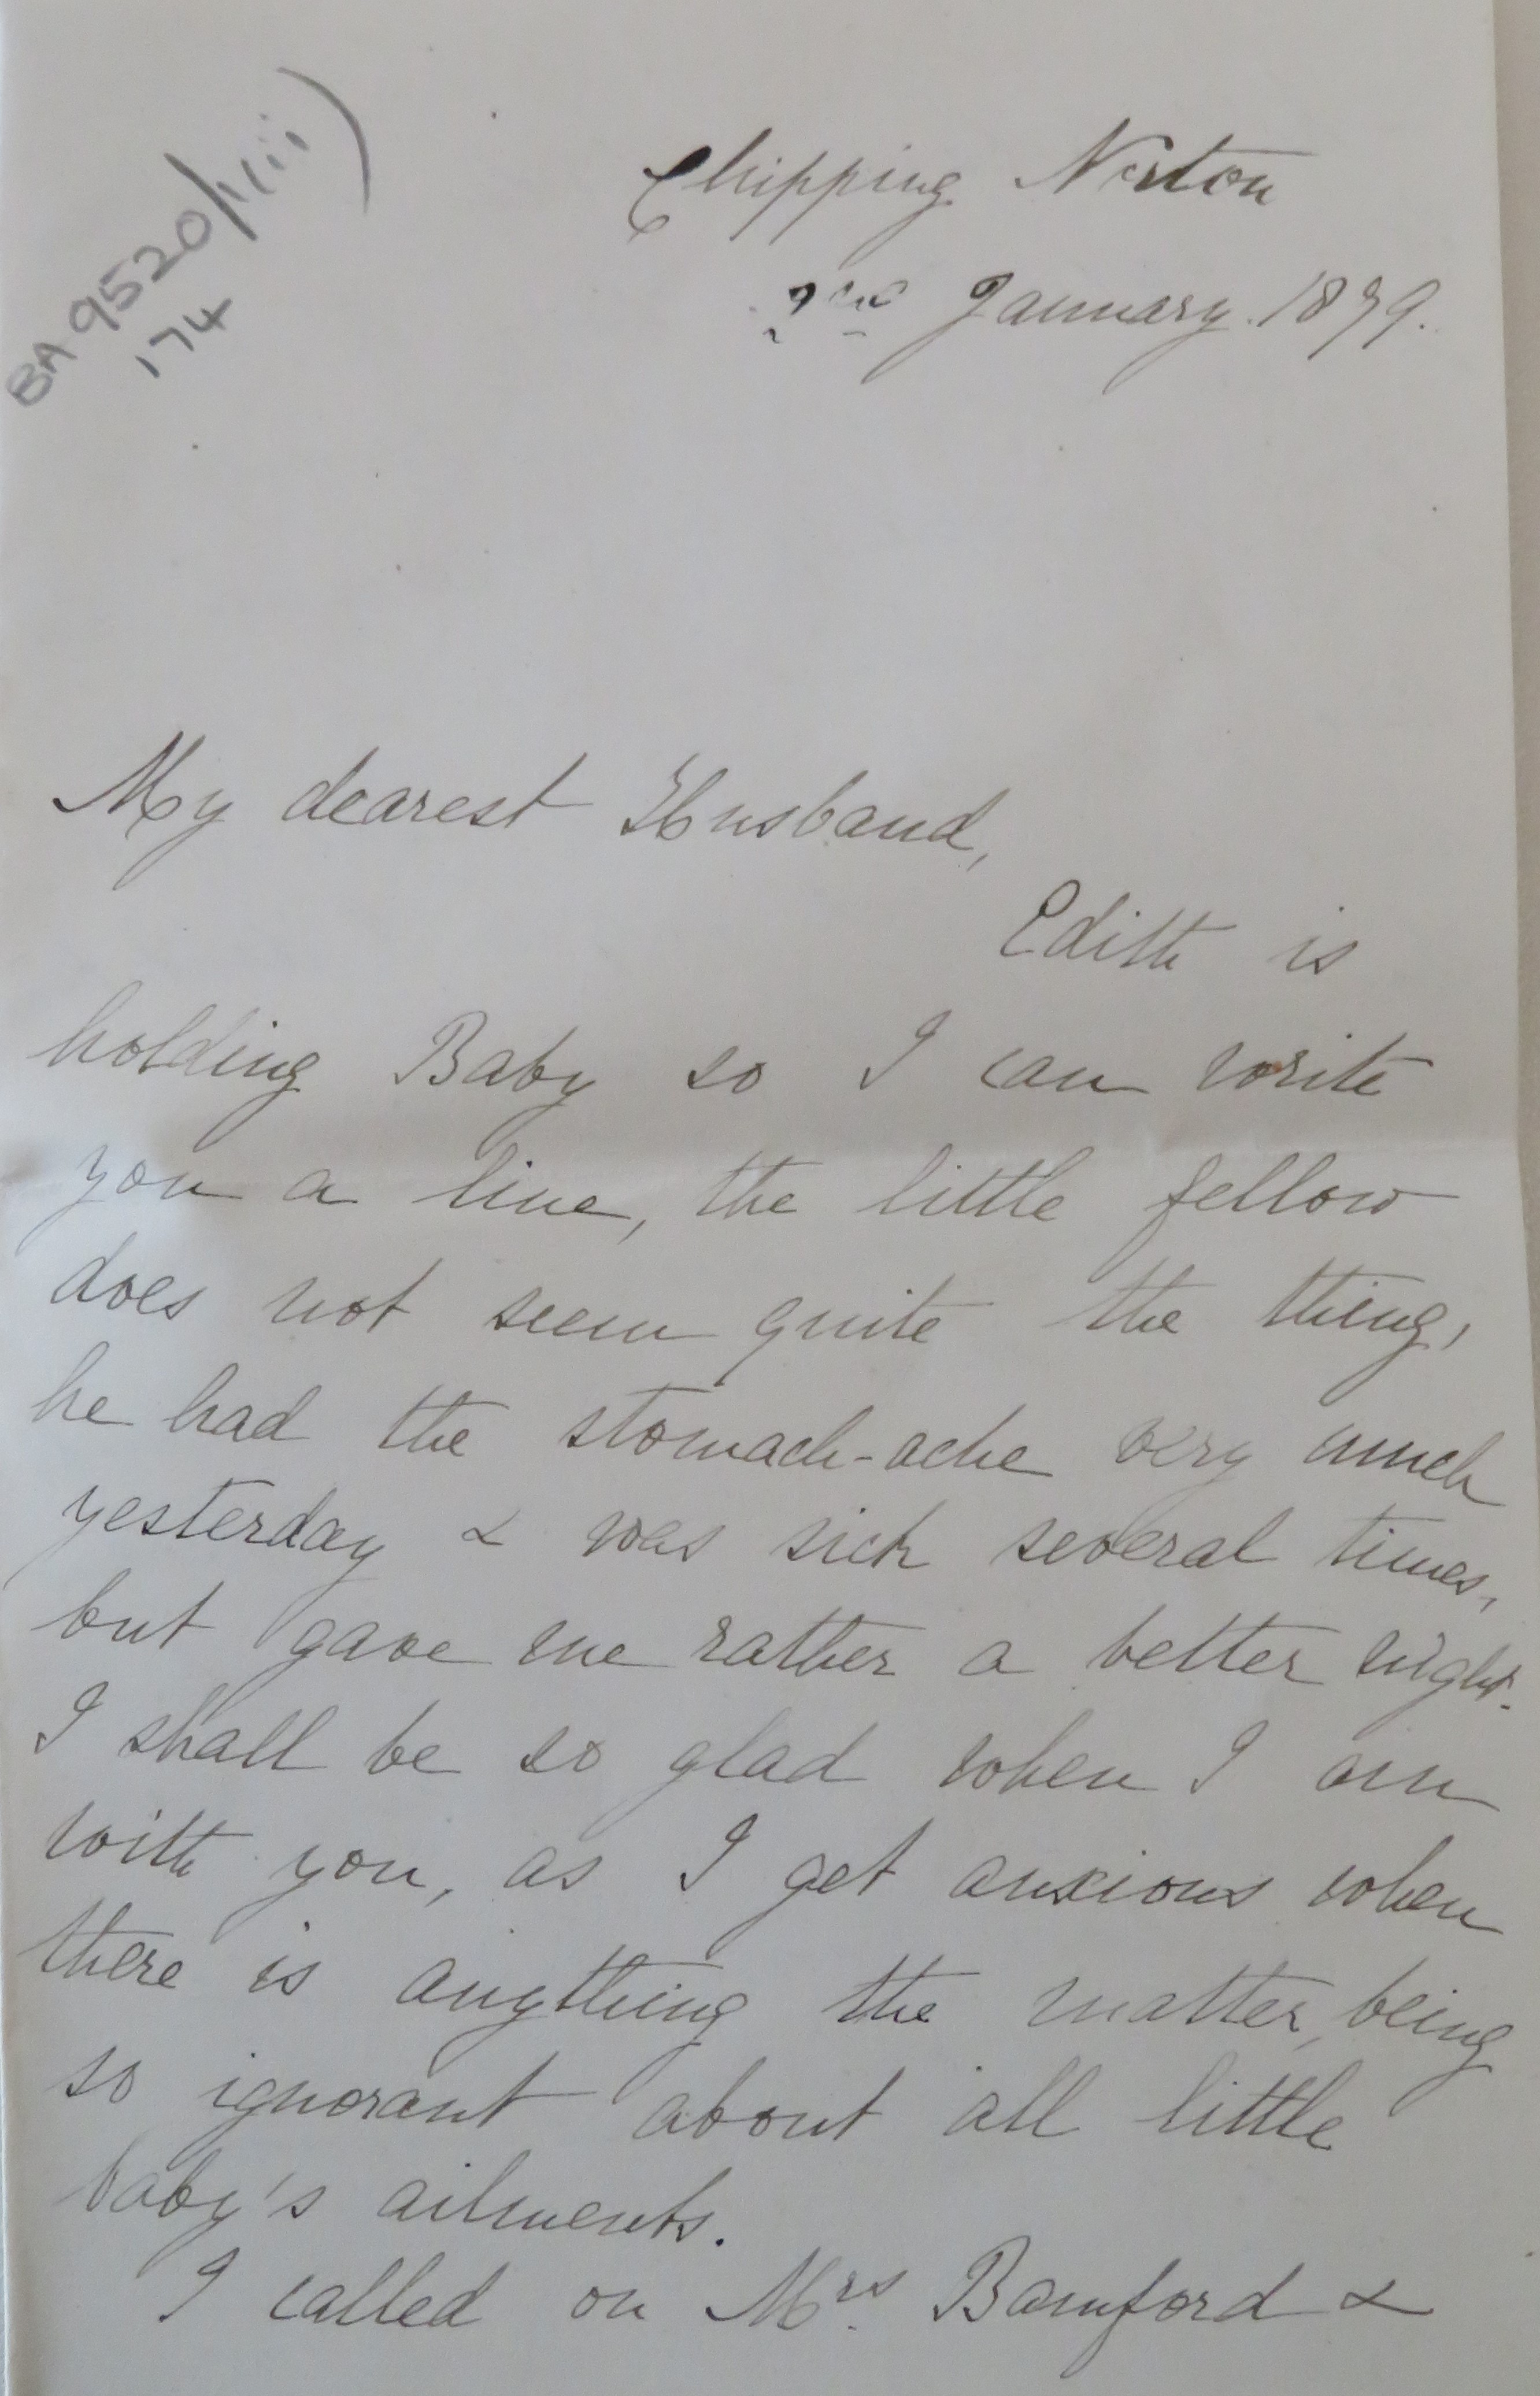 BA 9520/1/iii)
174
Chipping Norton
2nd January. 1879.
My dearest Husband,
Edith is
holding Baby so I can write
you a line, the little fellow
does not seem quite the thing,
he had the stomach-ache very much
yesterday & was sick several times,
but gave me rather a better night.
I shall be so glad when I am
with you, as I get anxious when
there is anything the matter, being
so ignorant about all little
baby's ailments.
I called on Mrs Bamford &